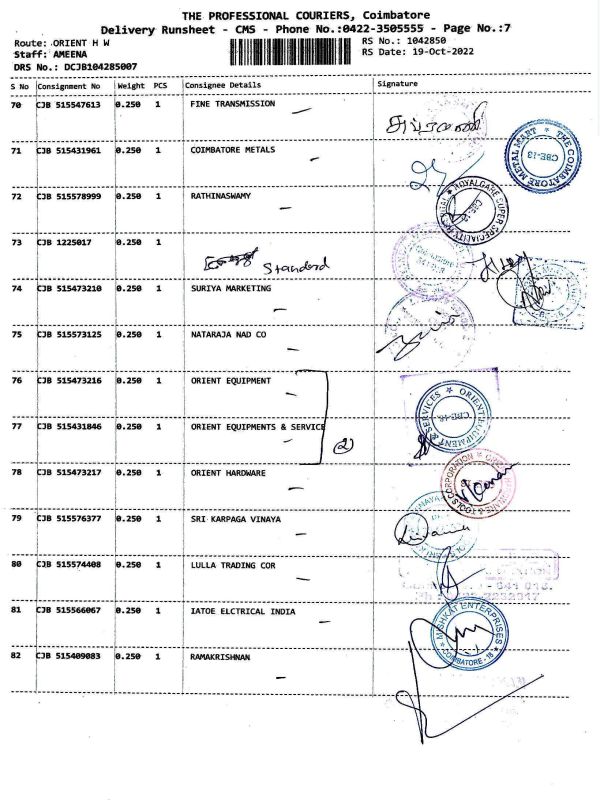 THE PROFESSIONAL COURIERS, Coimbatore
Delivery Runsheet - CMS - Phone No.:0422-3505555 - Page No.:7
Route: ORIENT H W
Staff: AMEENA
DRS No.: DCJB104285007
RS No.: 1042850
RS Date: 19-Oct-2022
S No Consignment No Weight PCS Consignee Details Signature
70 CJB 515547613 0.250 1 FINE TRANSMISSION
71 CJB 515431961 0.250 1 COIMBATORE METALS
THE COIMBATORE METAL MART CBE-18
72 CJB 515578999 0.250 1 RATHINASWAMY
ROYALCARE SUPER SPECIALITY
73 CJB 1225017 0.250 1
Standard
74 CJB 515473210 0.250 1 SURIYA MARKETING
75 CJB 515573125 0.250 1 NATARAJA NAD CO
76 CJB 515473216 0.250 1 ORIENT EQUIPMENT
77 CJB 515431846 0.250 1 ORIENT EQUIPMENTS & SERVICE
2
ORIENT EQUIPMENT & SERVICES CBE-18
78 CJB 515473217 0.250 1 ORIENT HARDWARE
79 CJB 515576377 0.250 1 SRI KARPAGA VINAYA
80 CJB 515574408 0.250 1 LULLA TRADING COR
81 CJB 515566067 0.250 1 IATOE ELCTRICAL INDIA
MISHKAT ENTERPRISES COIMBATORE - 18
82 CJB 515409083 0.250 1 RAMAKRISHNAN